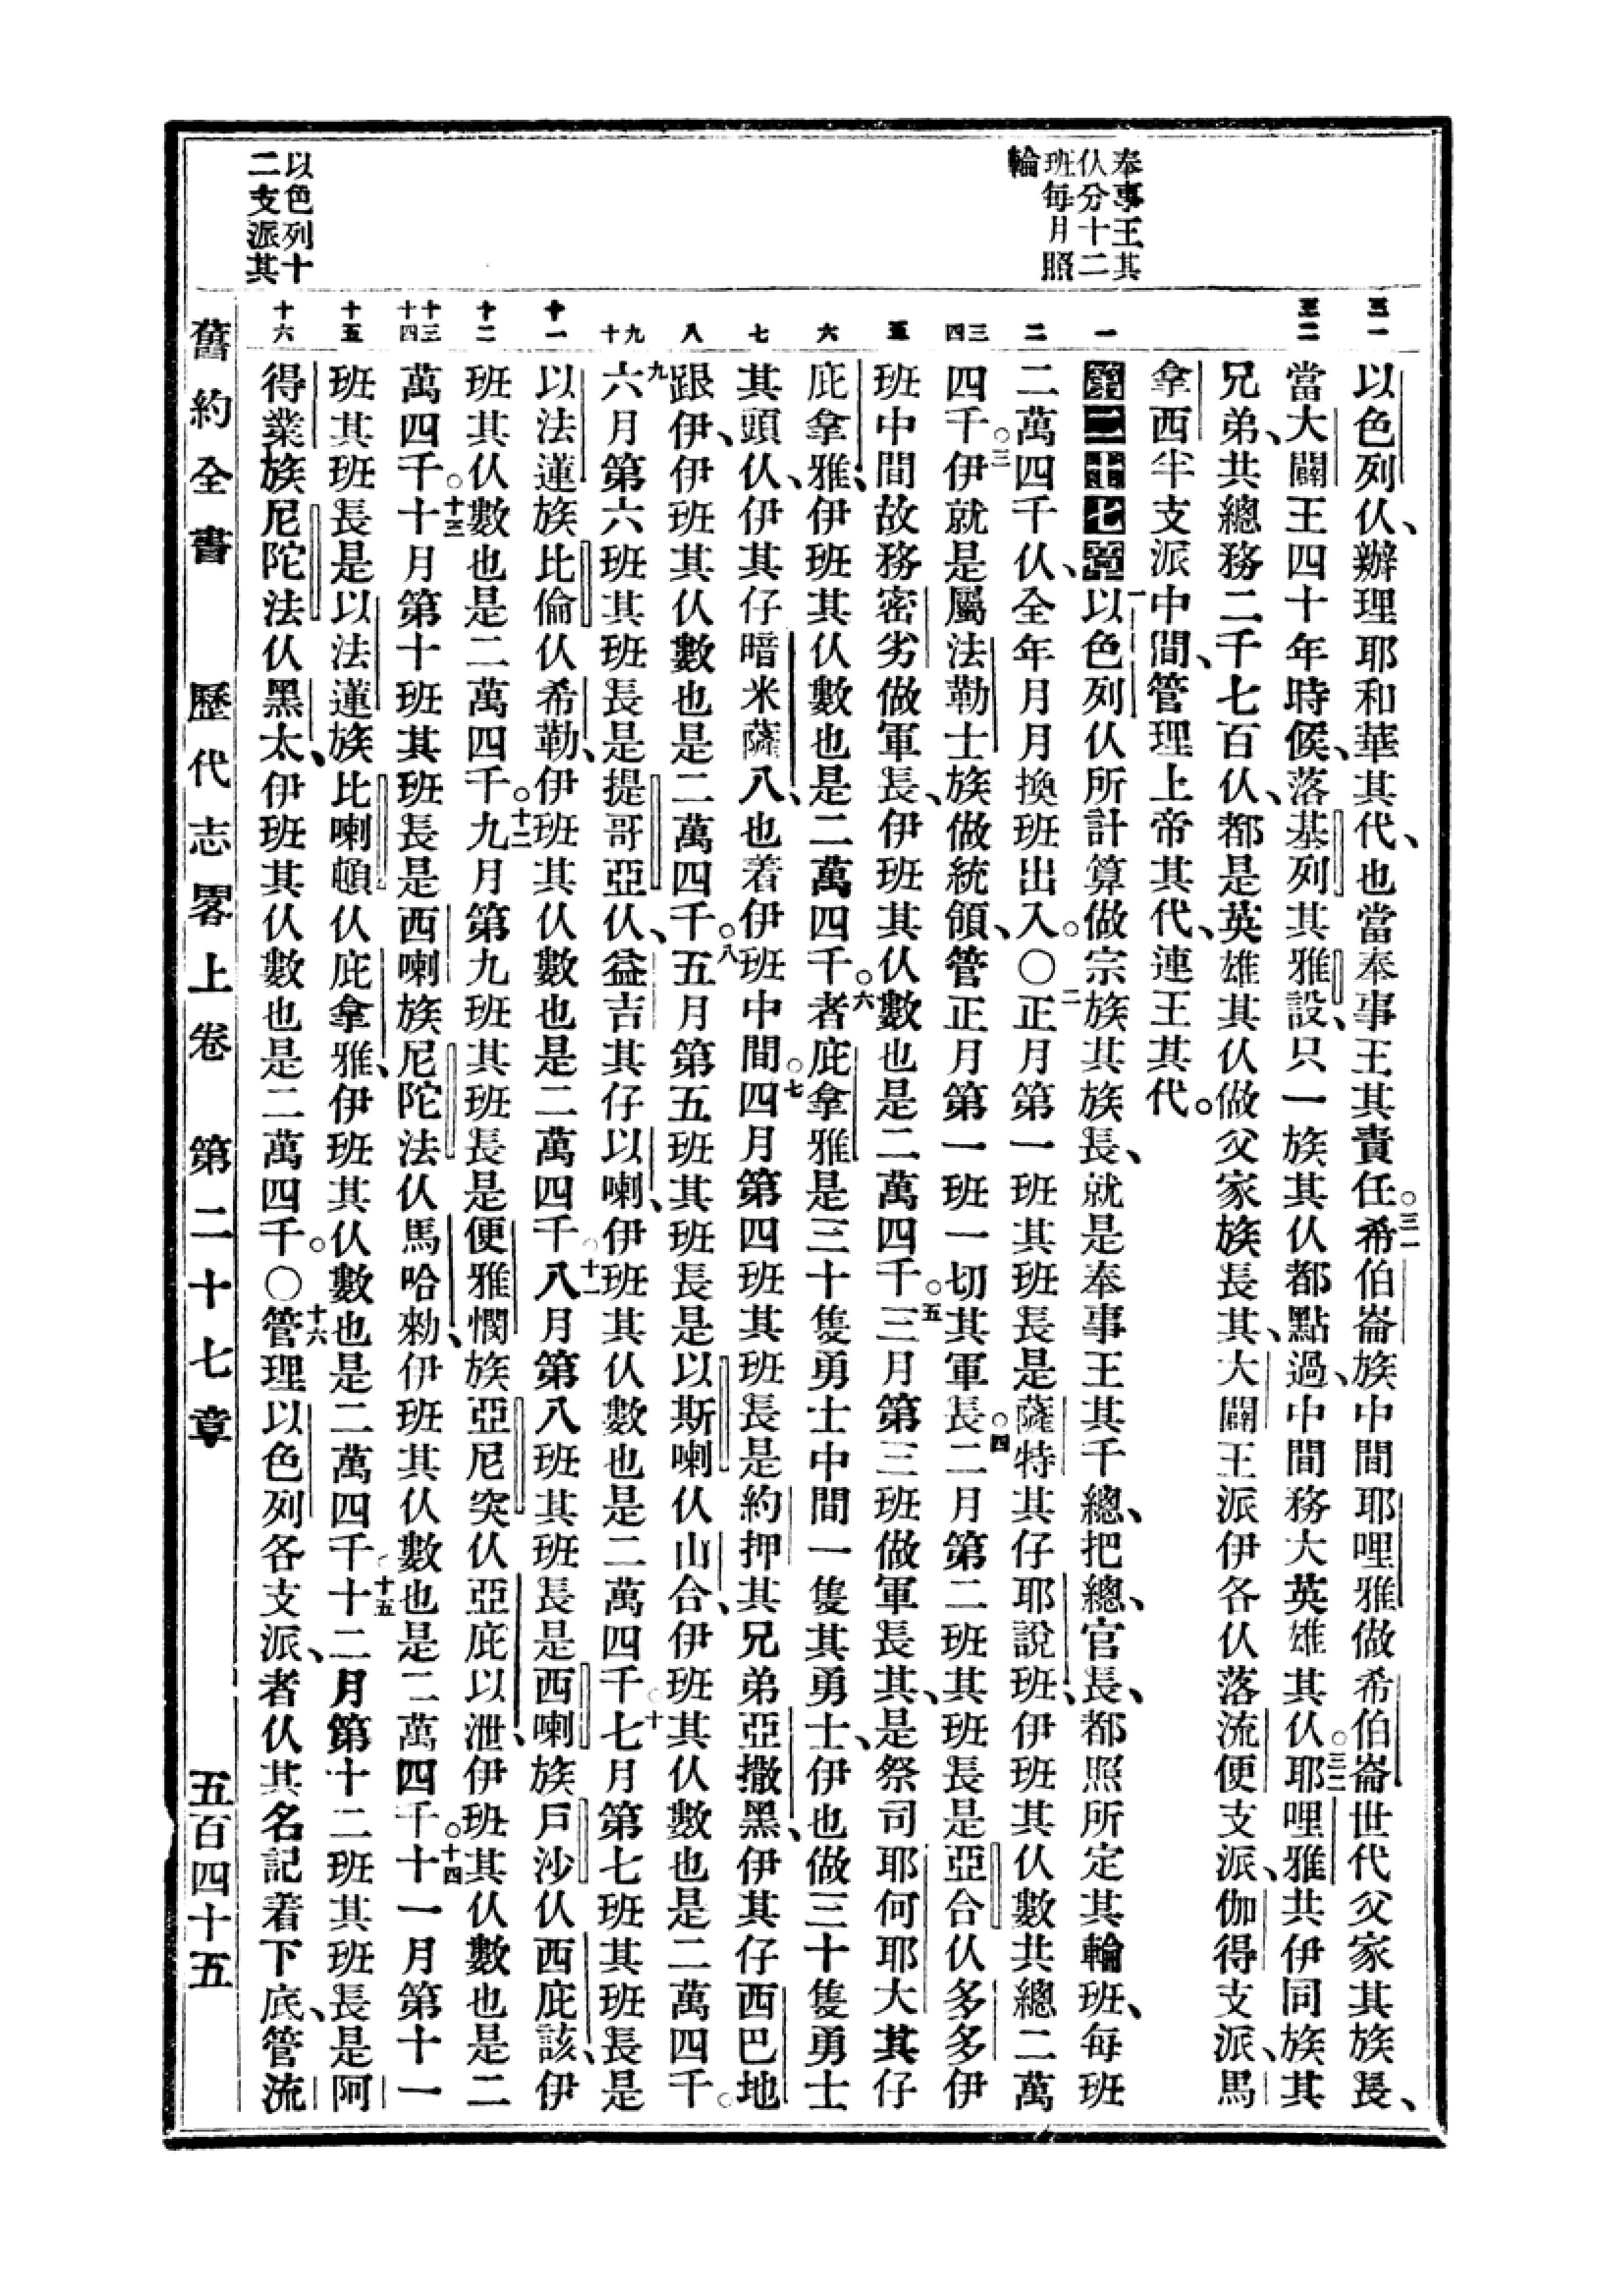 奉事王其
仈分十二
班每月照
輪
以色列十
二支派其
三一
三二
一
二
三
四
五
六
七
八
九
十
十一
十二
十三
十四
十五
十六
以色列仈、辦理耶和華其代、也當奉事王其責任。三一希伯崙族中間耶哩雅做希伯崙世代父家其族長、
當大闢王四十年時候、落基列其雅設、只一族其仈都點過、中間務大英雄其仈。三二耶哩雅共伊同族其
兄弟、共總務二千七百仈、都是英雄其仈做父家族長其、大闢王派伊各仈落流便支派、伽得支派、馬
拿西半支派中間、管理上帝其代、連王其代。
第二十七章一以色列仈所計算做宗族其族長、就是奉事王其千總、把總、官長、都照所定其輪班、每班
二萬四千仈、全年月月換班出入。〇二正月第一班其班長是薩特其仔耶說班、伊班其仈數共總二萬
四千。三伊就是屬法勒士族做統領、管正月第一班一切其軍長。四二月第二班其班長是亞合仈多多伊
班中間故務密劣做軍長、伊班其仈數也是二萬四千。五三月第三班做軍長其、是祭司耶何耶大其仔
庇拿雅、伊班其仈數也是二萬四千。六者庇拿雅是三十隻勇士中間一隻其勇士、伊也做三十隻勇士
其頭仈、伊其仔暗米薩八、也着伊班中間。七四月第四班其班長是約押其兄弟亞撒黑、伊其仔西巴地
跟伊、伊班其仈數也是二萬四千。八五月第五班其班長是以斯喇仈山合、伊班其仈數也是二萬四千。
九六月第六班其班長是提哥亞仈、益吉其仔以喇、伊班其仈數也是二萬四千。十七月第七班其班長是
以法蓮族比倫仈希勒、伊班其仈數也是二萬四千。十一八月第八班其班長是西喇族戶沙仈西庇該、伊
班其仈數也是二萬四千。十二九月第九班其班長是便雅憫族亞尼突仈亞庇以泄、伊班其仈數也是二
萬四千。十三十月第十班其班長是西喇族尼陀法仈馬哈勑、伊班其仈數也是二萬四千。十四十一月第十一
班其班長是以法蓮族比喇頓仈庇拿雅、伊班其仈數也是二萬四千。十五十二月第十二班其班長是阿
得業族尼陀法仈黑太、伊班其仈數也是二萬四千。〇十六管理以色列各支派、者仈其名記着下底、管流
舊約全書 歷代志畧上卷 第二十七章 五百四十五